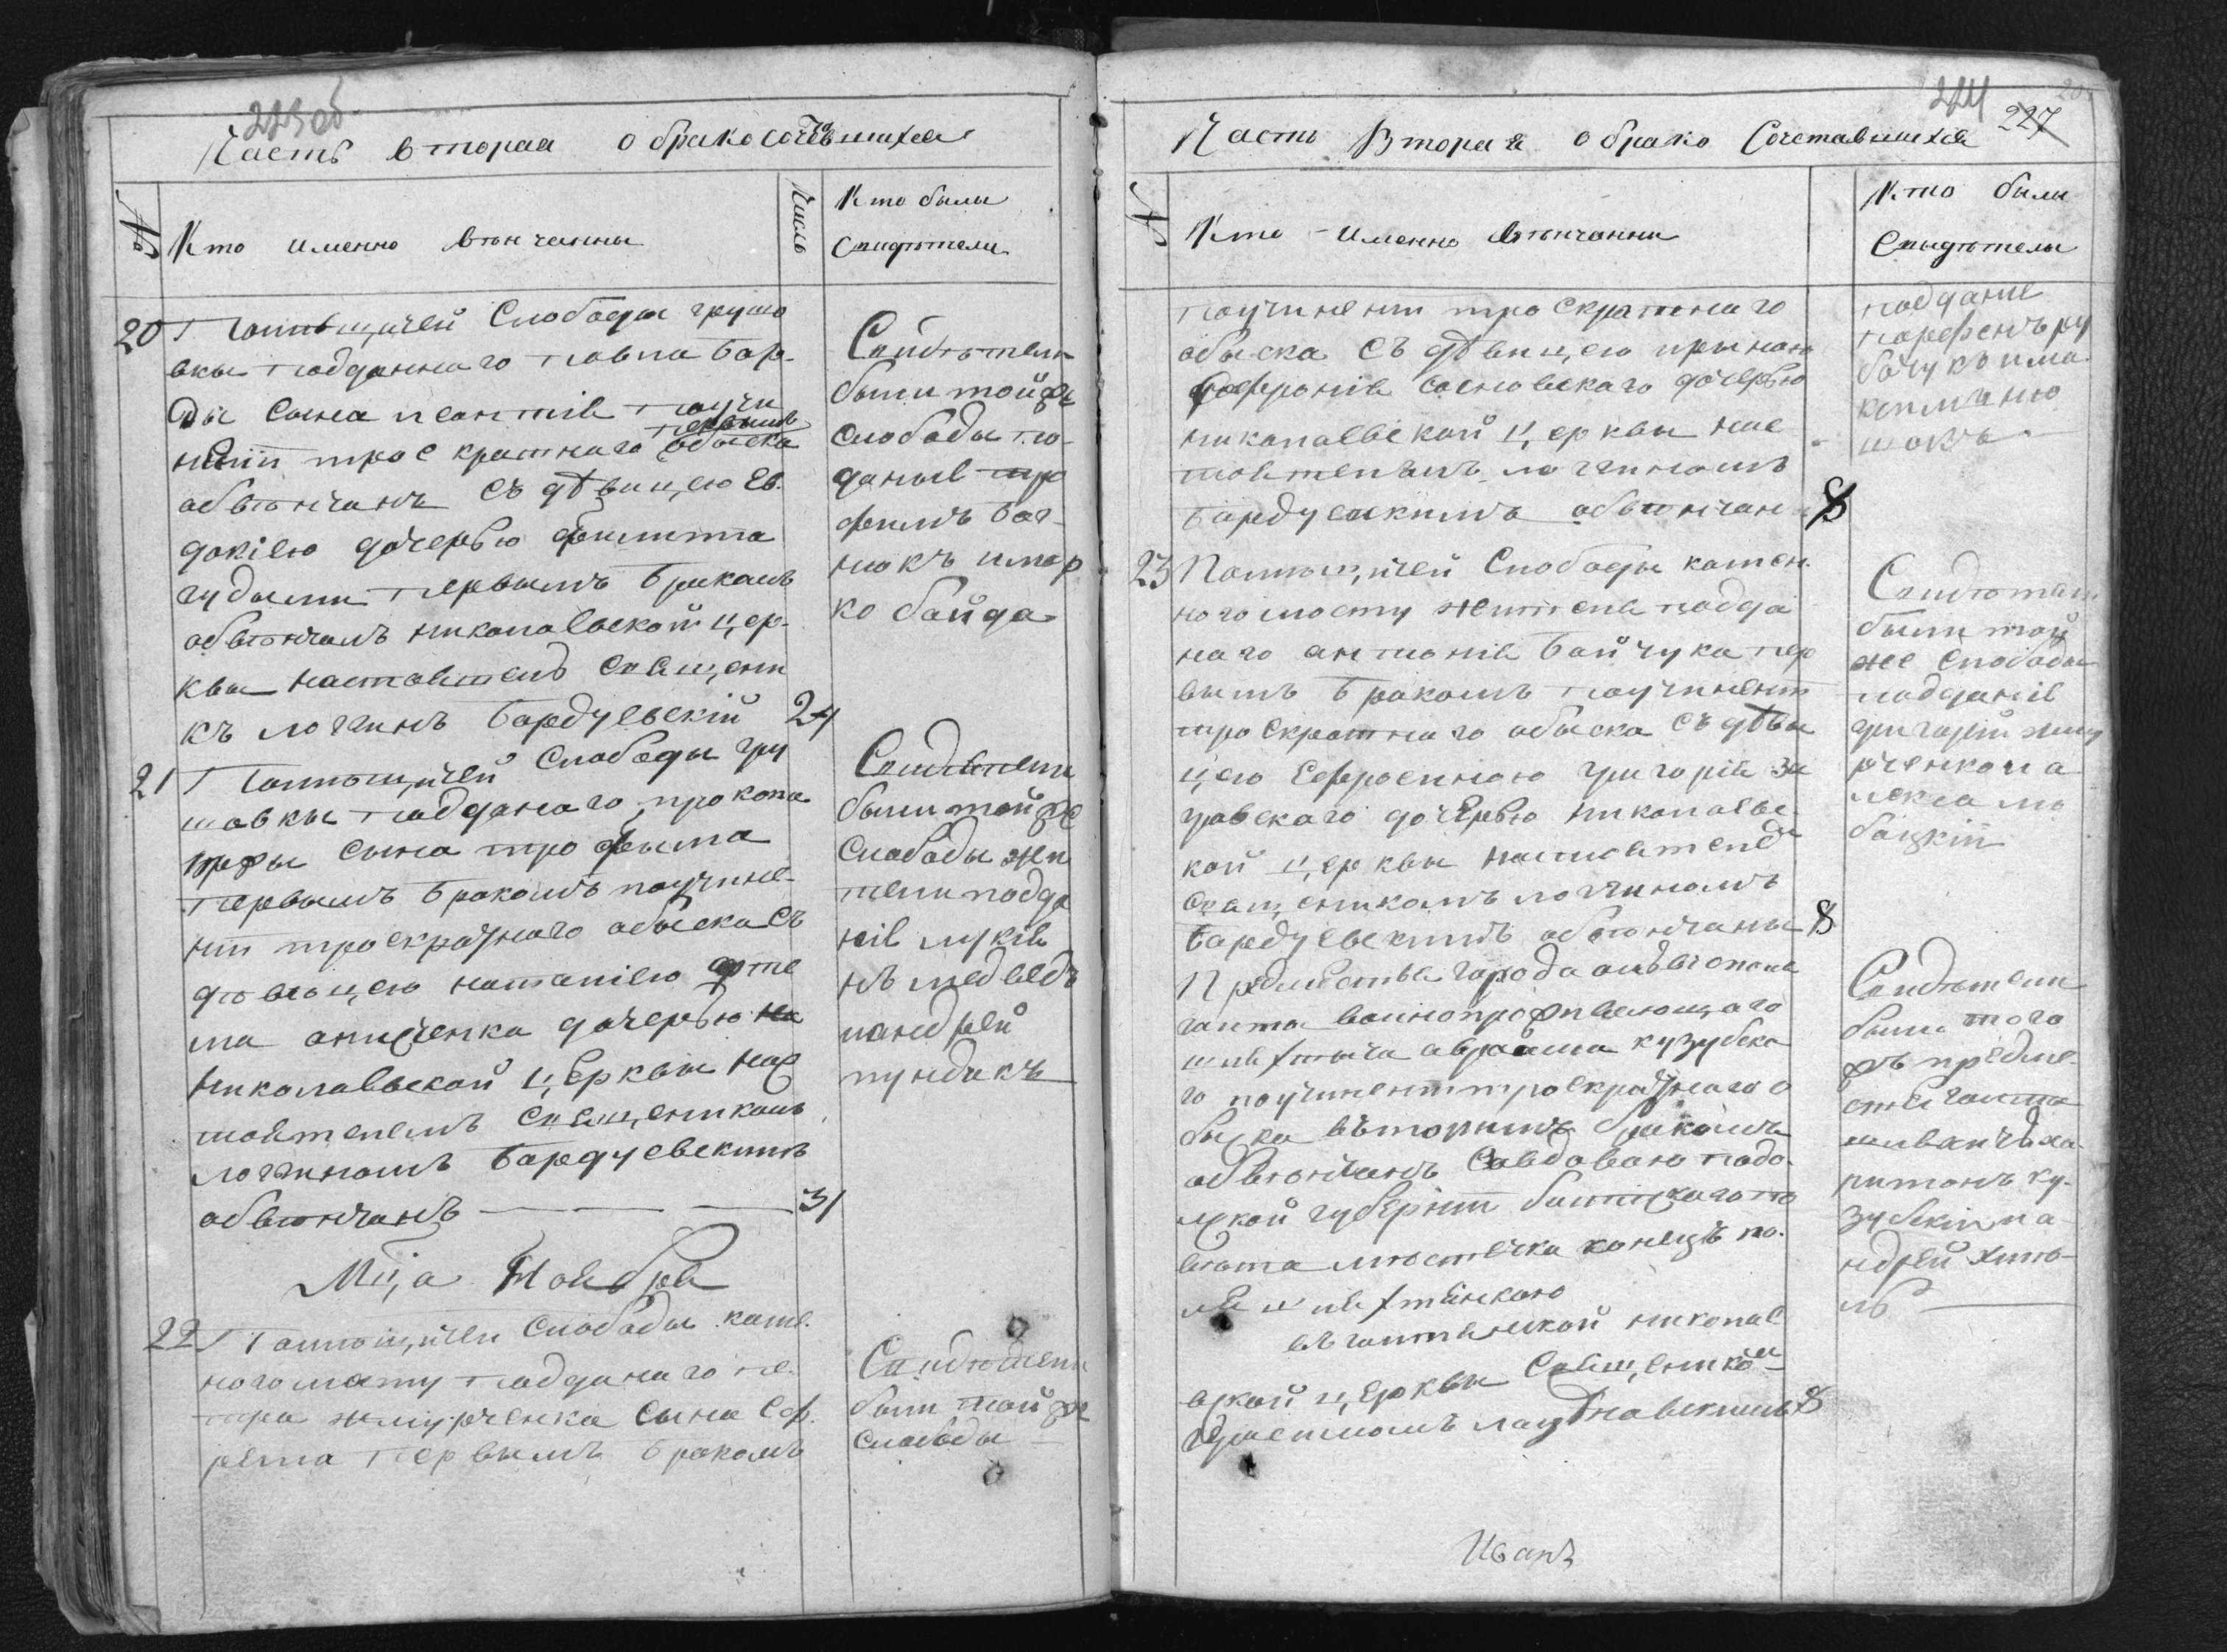 223 об
Часть вторая о бракосочевшихся
№
Кто именно венчанны
Число
Кто были
Свидетели
20 Помещичей Слободы грушо
вки подданнаго павла бар-
ды сына леонтия поучи
нении троекратнаго обыска
первымъ
обвенчанъ съ девицею Ев
докиею дочерью филиппа
чудыми первымъ бракомъ
обвенчалъ николаевской цер-
квы настоятель священи
къ логгинъ бардуевский 24
Свидетели
были той же
слободы по
даные тро
фимъ бог
нюкъ имар
ко байда
21 Помещичей Слободы гру
шовки подданаго прокопа
сына трофима
первымъ бракомъ поучине-
нии троекратнаго обыска съ
девыцею наталиею арте
ма онищенка дочерью на
николаевской церквы нас
тоятелемъ священикомъ
логгиномъ бардуевскимъ
обвенчанъ — — — 31
Свидетели
были той же
слободы жи
тели подда
ние лукия
нъ медведь
иандрей
пундикъ
Мца Ноября
22 Помещичей слободы каме
ного мосту подданаго пе
тра жмурченка сына еф
рема первымъ бракомъ
Свидетели
были той же
слободы
224 227
Часть Вторая о брако Сочетавшихся
№
Кто именно венчанны
Кто были
Свидетели
поучинении троекратнаго
обыска съ девицею ириною
софрония сосновскаго дочерью
николаевской церквы нас
тоятелемъ логгиномъ
бардуевскимъ обвенчан 8
подание
парфенъ ру
бачукъ има
ксимъ
23 Помещичей Слободы камен
ного мосту жителя подда
наго антония бойчука пер
вымъ бракомъ поучинении
троекратнаго обыска съ девы
цею Ефросиниею григория за
гравскаго дочерью николаевс
кой церквы настоятелем
священикомъ логгиномъ
бардуевскимъ обвенчаны 8
Свидетели
были той
же слободы
поддание
григорий жму
рченко иа
лекса ло
бацкий
Предместья города ольвиополя
голта воинопроживающаго
шляхтича авраама кузубска
го поучинении троекратнаго о
быска въторимъ бракомъ
обвенчанъ совдовою подо
лской губернии балтскаго по
вета местечка конецъ по
ля шляхтянкою
въ голтянской николаев
ской церквы священико
8
Свидетели
были того
жъ предме
стья голта
шляхтичъ ха
ритонъ ку-
зубский иа
ндрей хмѣ
ль —
Иванъ